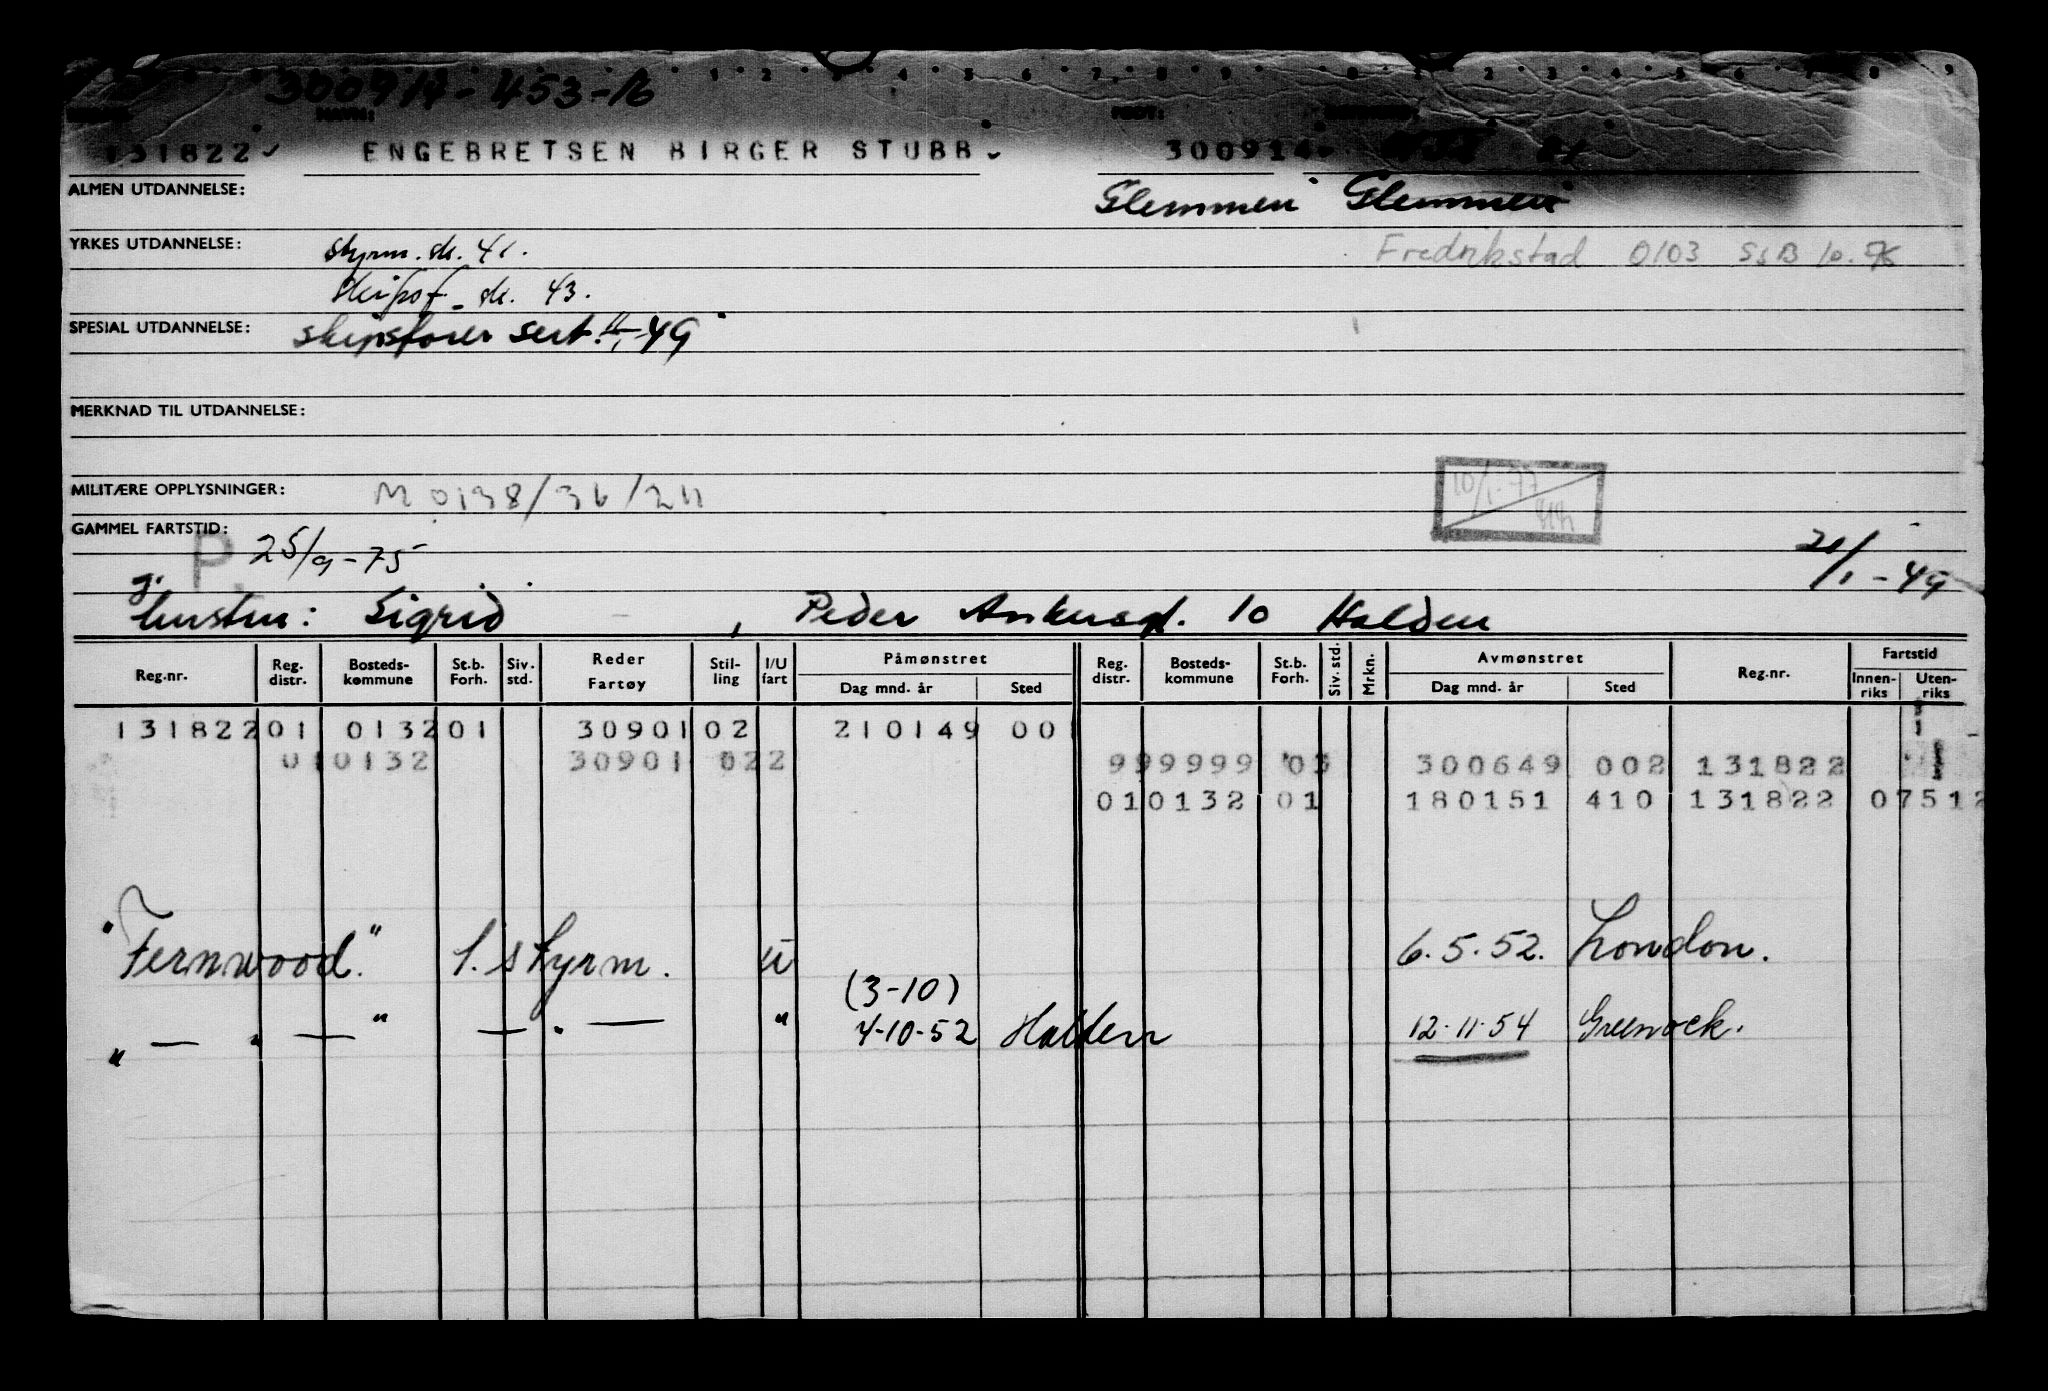 300914-453-16
1 2 3 4 5 6 7 8 9 0 1 2 3 4 5 6 7 8 9
NAVN: FØDT:
131822 ENGEBRETSEN BIRGER STUBB 300914
ALMEN UTDANNELSE: Glemmen Glemmen
YRKES UTDANNELSE: styrm. sk. 41. Fredrikstad 0103 SsB 10.
skipsf. sk. 43.
SPESIAL UTDANNELSE: skipsfører sert. -49
MERKNAD TIL UTDANNELSE:
MILITÆRE OPPLYSNINGER: M 0138/36/211 10/1-77
GAMMEL FARTSTID: P. 25/9-75 21/1-49
g.
hustru: Sigrid , Peder Ankersgt. 10 Halden
Reg.nr. Reg. distr. Bosteds-kommune St.b. Forh. Siv. std. Reder Fartøy Stil-ling I/U fart Påmønstret Dag mnd. år Sted Reg. distr. Bosteds-kommune St.b. Forh. Siv. std. Mrkn. Avmønstret Dag mnd. år Sted Reg.nr. Fartstid Innen-riks Uten-riks
131822 01 0132 01 30901 02 210149 00
01 0132 30901 022 99 9999 03 300649 002 131822
01 0132 01 180151 410 131822 07512
"Fernwood." 1. styrm. u 6.5.52. London.
(3-10)
" — " — " — " — " 4-10-52 Halden 12-11-54 Greenock.